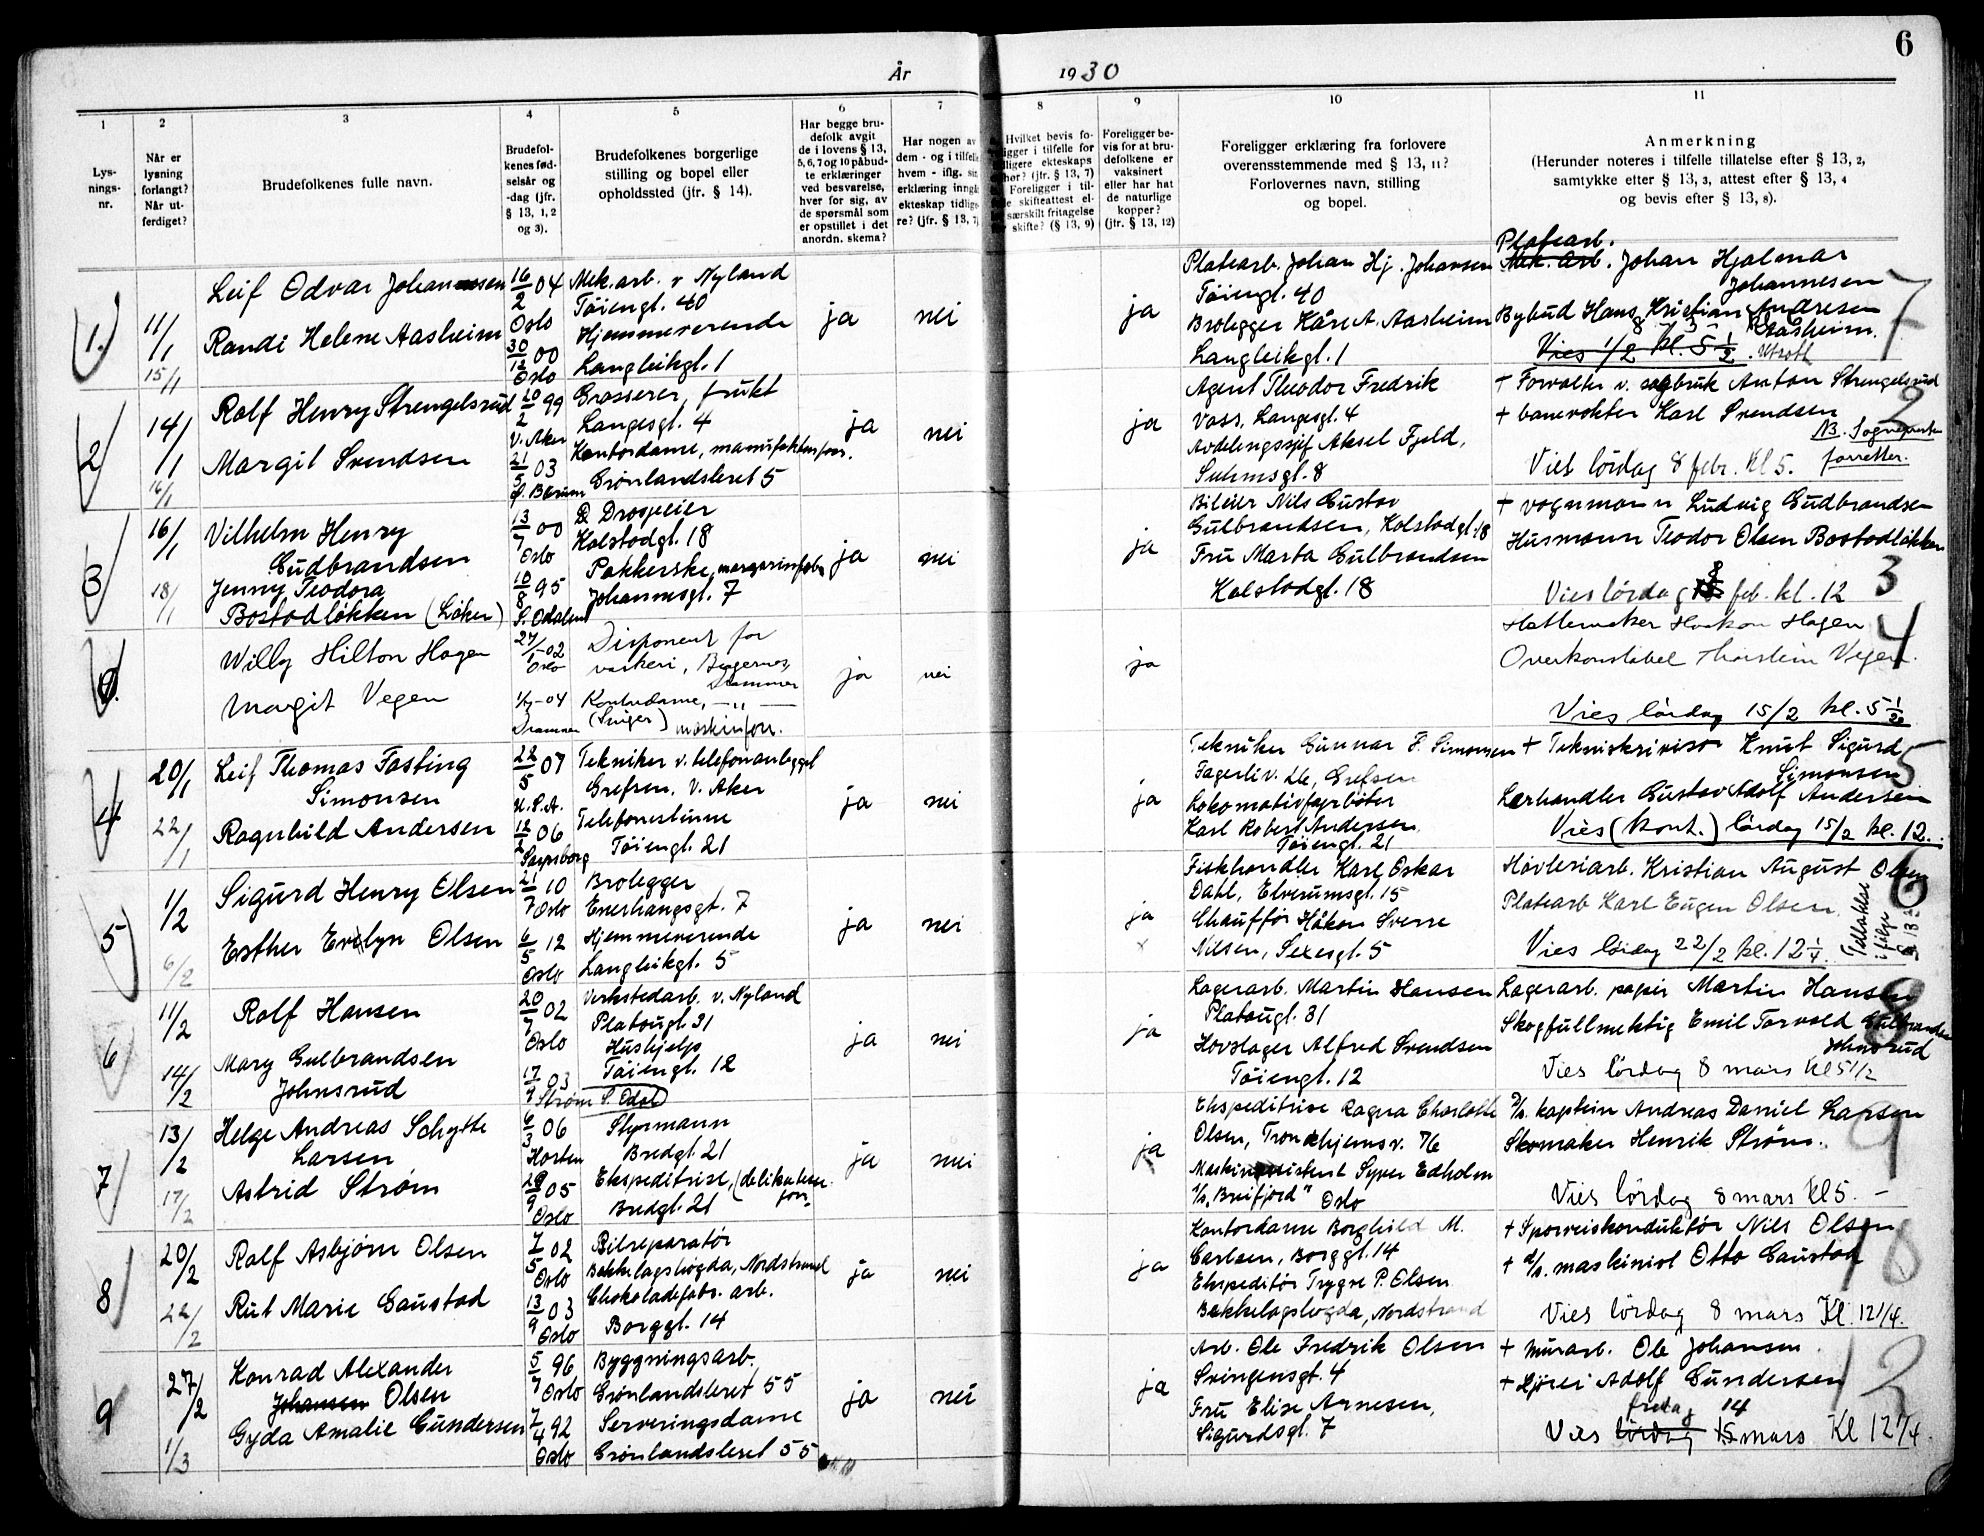 6
År 1930
1
2
3
4
5
6
7
8
9
10
11
Lys-
nings-
nr.
Når er
lysning
forlangt?
Når ut-
ferdiget?
Brudefolkenes fulle navn.
Brudefol-
kenes fød-
selsår og
-dag (jfr.
§ 13, 1, 2
og 3).
Brudefolkenes borgerlige
stilling og bopel eller
opholdssted (jfr. § 14).
Har begge bru-
defolk avgit
de i lovens § 13,
5, 6, 7 og 10 påbud-
te erklæringer
ved besvarelse,
hver for sig, av
de spørsmål som
er opstillet i det
anordn. skema?
Har nogen av
dem - og i tilfelle
hvem - iflg. sin
erklæring inngå
ekteskap tidlige
re? (jfr. § 13, 7)
Hvilket bevis fo-
ligger i tilfelle for
ligere ekteskaps
hør? (jfr. § 13, 7)
Foreligger i til-
de skifteattest el-
særskilt fritagelse
skifte? (§ 13, 9)
Foreligger be-
vis for at bru-
defolkene er
vaksinert
eller har hat
de naturlige
kopper?
(jfr. § 13, 12)
Foreligger erklæring fra forlovere
overensstemmende med § 13, 11?
Forlovernes navn, stilling
og bopel.
Anmerkning
(Herunder noteres i tilfelle tillatelse efter § 13, 2,
samtykke efter § 13, 3, attest efter § 13, 4
og bevis efter § 13, 8).
1.
11/1
15/1
Leif Odvar Johannessen
Randi Helene Aasheim
16/2 04
Oslo
30/12 00
Oslo
Mek. arb. v Nyland
Tøiengt. 40
Hjemmeværende
Langleikgt. 1
ja
nei
ja
Platearb. Johan Hj. Johansen
Tøiengt. 40
Brolegger Kåre A. Aasheim
Langleikgt. 1
Platearb.
Mek. arb. Johan Hjalmar
Johannesen
Bybud Hans Kristian Andresen
Aasheim.
Vies 1/2 kl. 5 1/2.
7
2
14/1
16/1
Rolf Henry Strengelsrud
Margit Svendsen
20/2 99
V. Aker
21/5 03
Bærum
Grosserer, frukt
Langesgt. 4
Kontordame, manufakturforr.
Grønlandsleret 5
ja
nei
ja
Agent Theodor Fredrik
Voss, Langesgt. 4
Avdelingssjef Aksel Fjeld,
Suhmsgt. 8
+ Forvalter v. sagbruk Anton Strengelsrud
+ banevokter Karl Svendsen
NB. Sognepresten
forretter.
Viet lördag 8 febr. kl 5.
2
3
16/1
18/1
Vilhelm Henry
Gudbrandsen
Jenny Teodora
Bostadløkken (Løken)
13/7 00
Oslo
10/8 95
S. Odalen
Drosjeeier
Kolstadgt. 18
Pakkerske, margarinfabr
Johannesgt. 7
ja
nei
ja
Bileier Nils Gustav
Gulbrandsen, Kolstadgt. 18
Fru Marta Gulbrandsen
Kolstadgt. 18
+ vognmann Ludvig Gudbrandsen
Husmann Teodor Olsen Bostadløkken
Vies lørdag 8 feb. kl. 12
3
Willy Hilton Hagen
Margit Vegen
27/1-02
Oslo
1/7-04
Drammen
Disponent for
vaskeri, Bragernes,
Drammen
Kontordame, — „ —
(Singer) maskinforr.
ja
nei
ja
Hattemaker Haakon Hagen
Overkonstabel Thorstein Vegen.
Vies lördag 15/2 kl. 5 1/2
4
4
20/1
22/1
Leif Thomas Fasting
Simonsen
Ragnhild Andersen
22/5 07
U.S.A.
12/2 06
Sarpsborg
Tekniker v. telefonanlegget
Grefsen, V. Aker
Telefonistinne
Tøiengt. 21
ja
nei
ja
Tekniker Gunnar F. Simonsen
Fagerliv., Grefsen
Lokomotivfyrbøter
Karl Robert Andersen,
Tøiengt. 21
+ Teknisk revisor Knut Sigurd
Simonsen
Lærhandler Gustav Adolf Andersen
Vies (kont.) lördag 15/2 kl. 12.
5
5
1/2
6/2
Sigurd Henry Olsen
Esther Evelyn Olsen
21/7 10
Oslo
6/5 12
Oslo
Brolegger
Enerhaugsgt. 7
Hjemmeværende
Langleikgt. 5
ja
nei
ja
×
Fiskhandler Karl Oskar
Dahl, Elverumsgt. 15
Chauffør Håkon Sverre
Nilsen, Sexesgt. 5
Høvleriarb. Kristian August Olsen
Platearb Karl Eugen Olsen.
Vies lördag 22/2 kl. 12 1/4.
Tillatelse
ifølge
§ 13 2
6
6
11/2
14/2
Rolf Hansen
Mary Gulbrandsen
Johnsrud
20/7 02
Oslo
17/9 03
Strøm S. Odal
Verkstedarb. v. Nyland
Platougt. 31
Hushjelp
Tøiengt. 12
ja
nei
ja
Lagerarb. Martin Hansen
Platougt. 31
Hovslager Alfred Svendsen
Tøiengt. 12
Lagerarb. papir Martin Hansen
Skogfullmektig Emil Torvald Gulbrandsen
Johnsrud
Vies lördag 8 mars kl 5 1/2
8
7
13/2
17/2
Helge Andreas Schytte
Larsen
Astrid Strøm
6/3 06
Horten
29/9 05
Oslo
Styrmann
Bredgt. 21
Ekspeditrise, (delikatesse
forr.
Bredgt. 21
ja
nei
ja
Ekspeditrise Ragna Charlotte
Olsen, Trondhjemsv. 76
Maskinassistent Syver Edholm
D/S. "Breifjord" Oslo
D/S. kaptein Andreas Daniel Larsen
Skomaker Henrik Strøm.
Vies lördag 8 mars kl 5. —
9
8
20/2
22/2
Rolf Asbjørn Olsen
Rut Marie Gaustad
7/5 02
Oslo
13/9 03
Oslo
Bilreparatør
Bekkelagshøgda, Nordstrand
Chokoladefabr. arb.
Borggt. 14
ja
nei
ja
Kontordame Borghild M.
Carlsen, Borggt. 14
Ekspeditør Trygve P. Olsen
Bekkelagshøgda, Nordstrand
+ Sporveiskonduktør Nils Olsen
+ D/S. maskinist Otto Gaustad
Vies lördag 8 mars Kl. 12 1/4.
10
9
27/2
1/3
Konrad Alexander
Johansen Olsen
Gyda Amalie Gundersen
5/7 96
Oslo
7/4 92
Oslo
Byggningsarb.
Grønlandsleret 55
Serveringsdame
Grønlandsleret 55
ja
nei
ja
Arb. Ole Fredrik Olsen
Svingensgt. 4
Fru Elise Arnesen,
Sigurdsgt. 7
+ Murarb. Ole Johansen
+ Kjører Adolf Gundersen
fredag 14
Vies lördag 15 mars Kl 12 1/4.
12